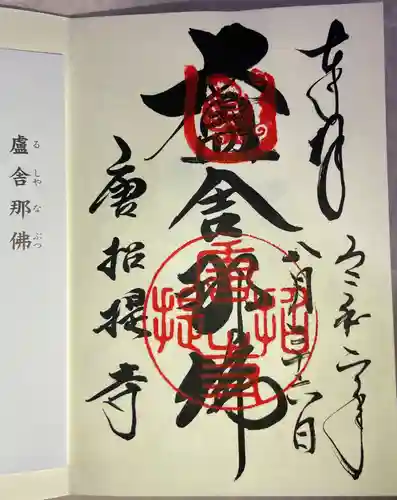 奉拝
令和二年
八月二十六日
盧舎那佛
唐招提寺
盧舎那佛
るしゃなぶつ